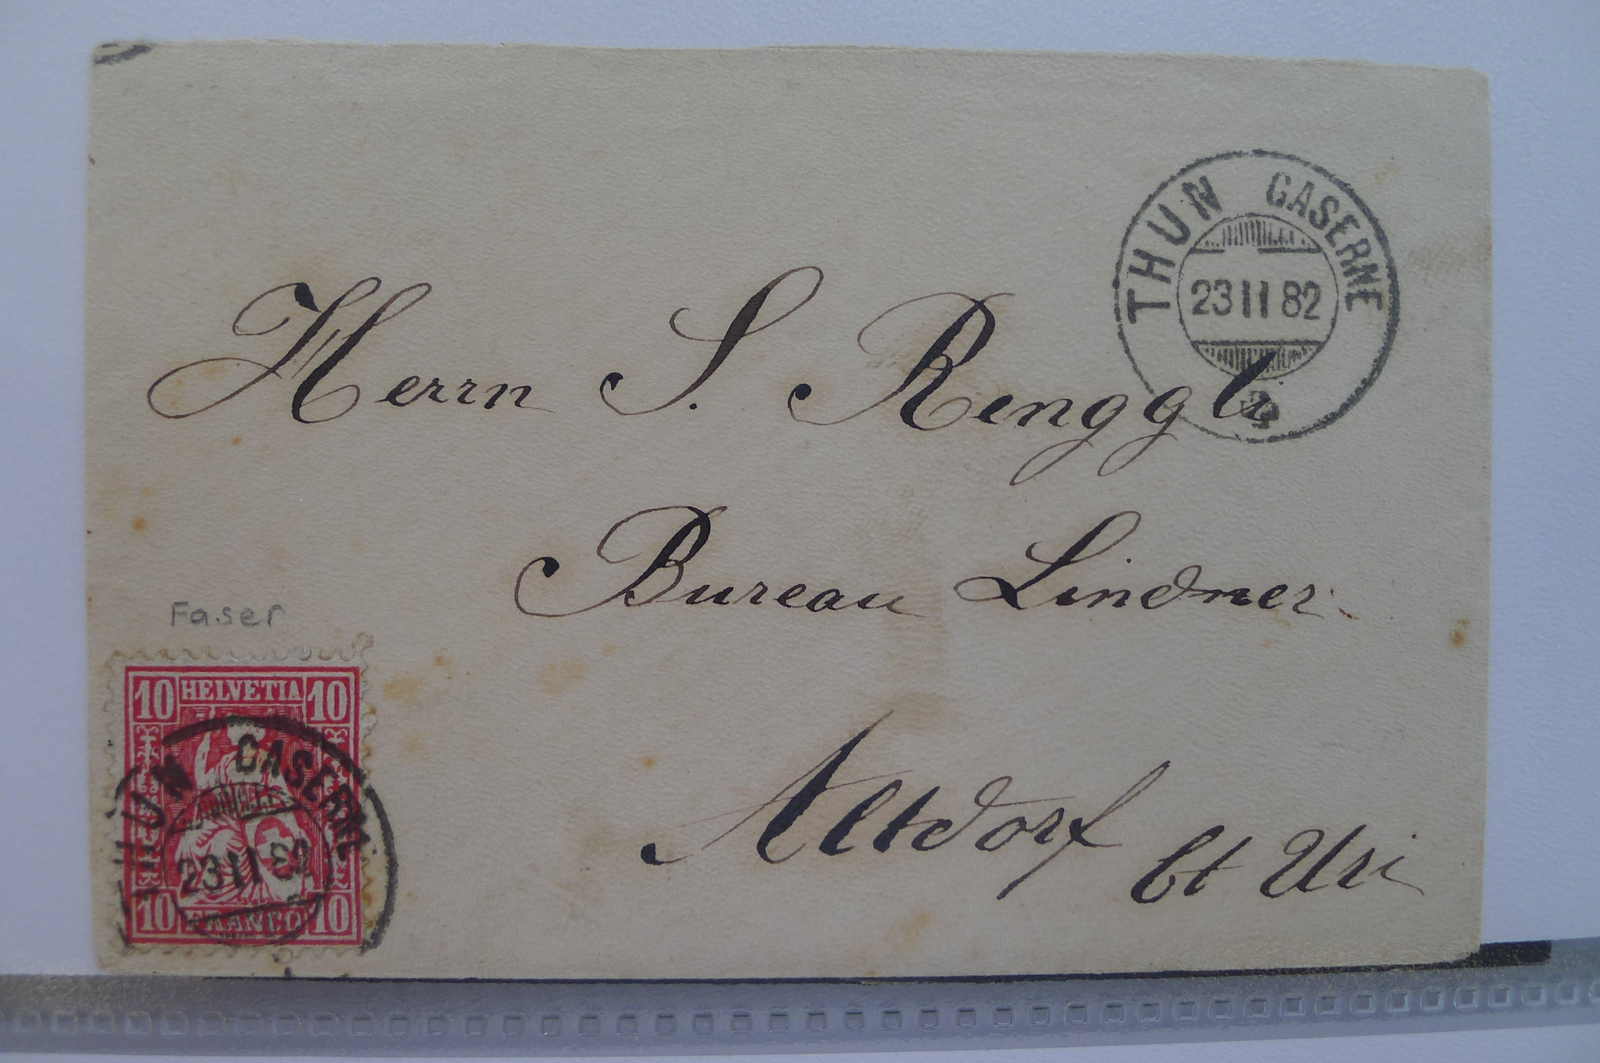 THUN CASERNE
23 II 82
Herrn S. Renggli
Bureau Lindner
Faser
Altdorf
Ct Uri
10 HELVETIA 10
THUN CASERNE
23 II 82
10 FRANCO 10